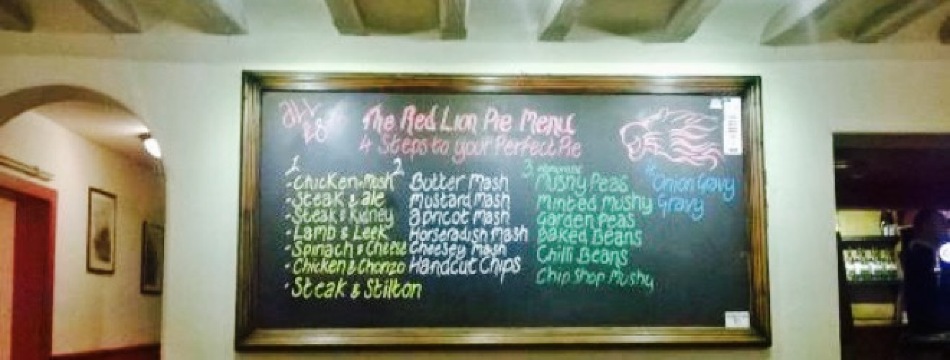 All £8
The Red Lion Pie Menu
4 Steps to your Perfect Pie
1
- Chicken & Mush
- Steak & ale
- Steak & Kidney
- Lamb & Leek
- Spinach & Cheese
- Chicken & Chorizo
- Steak & Stilton
2
Butter Mash
Mustard Mash
apricot Mash
Horseradish Mash
Cheesey Mash
Handcut Chips
3
Mushy Peas
Minted Mushy
Garden Peas
Baked Beans
Chilli Beans
Chip Shop Mushy
4
Onion Gravy
Gravy